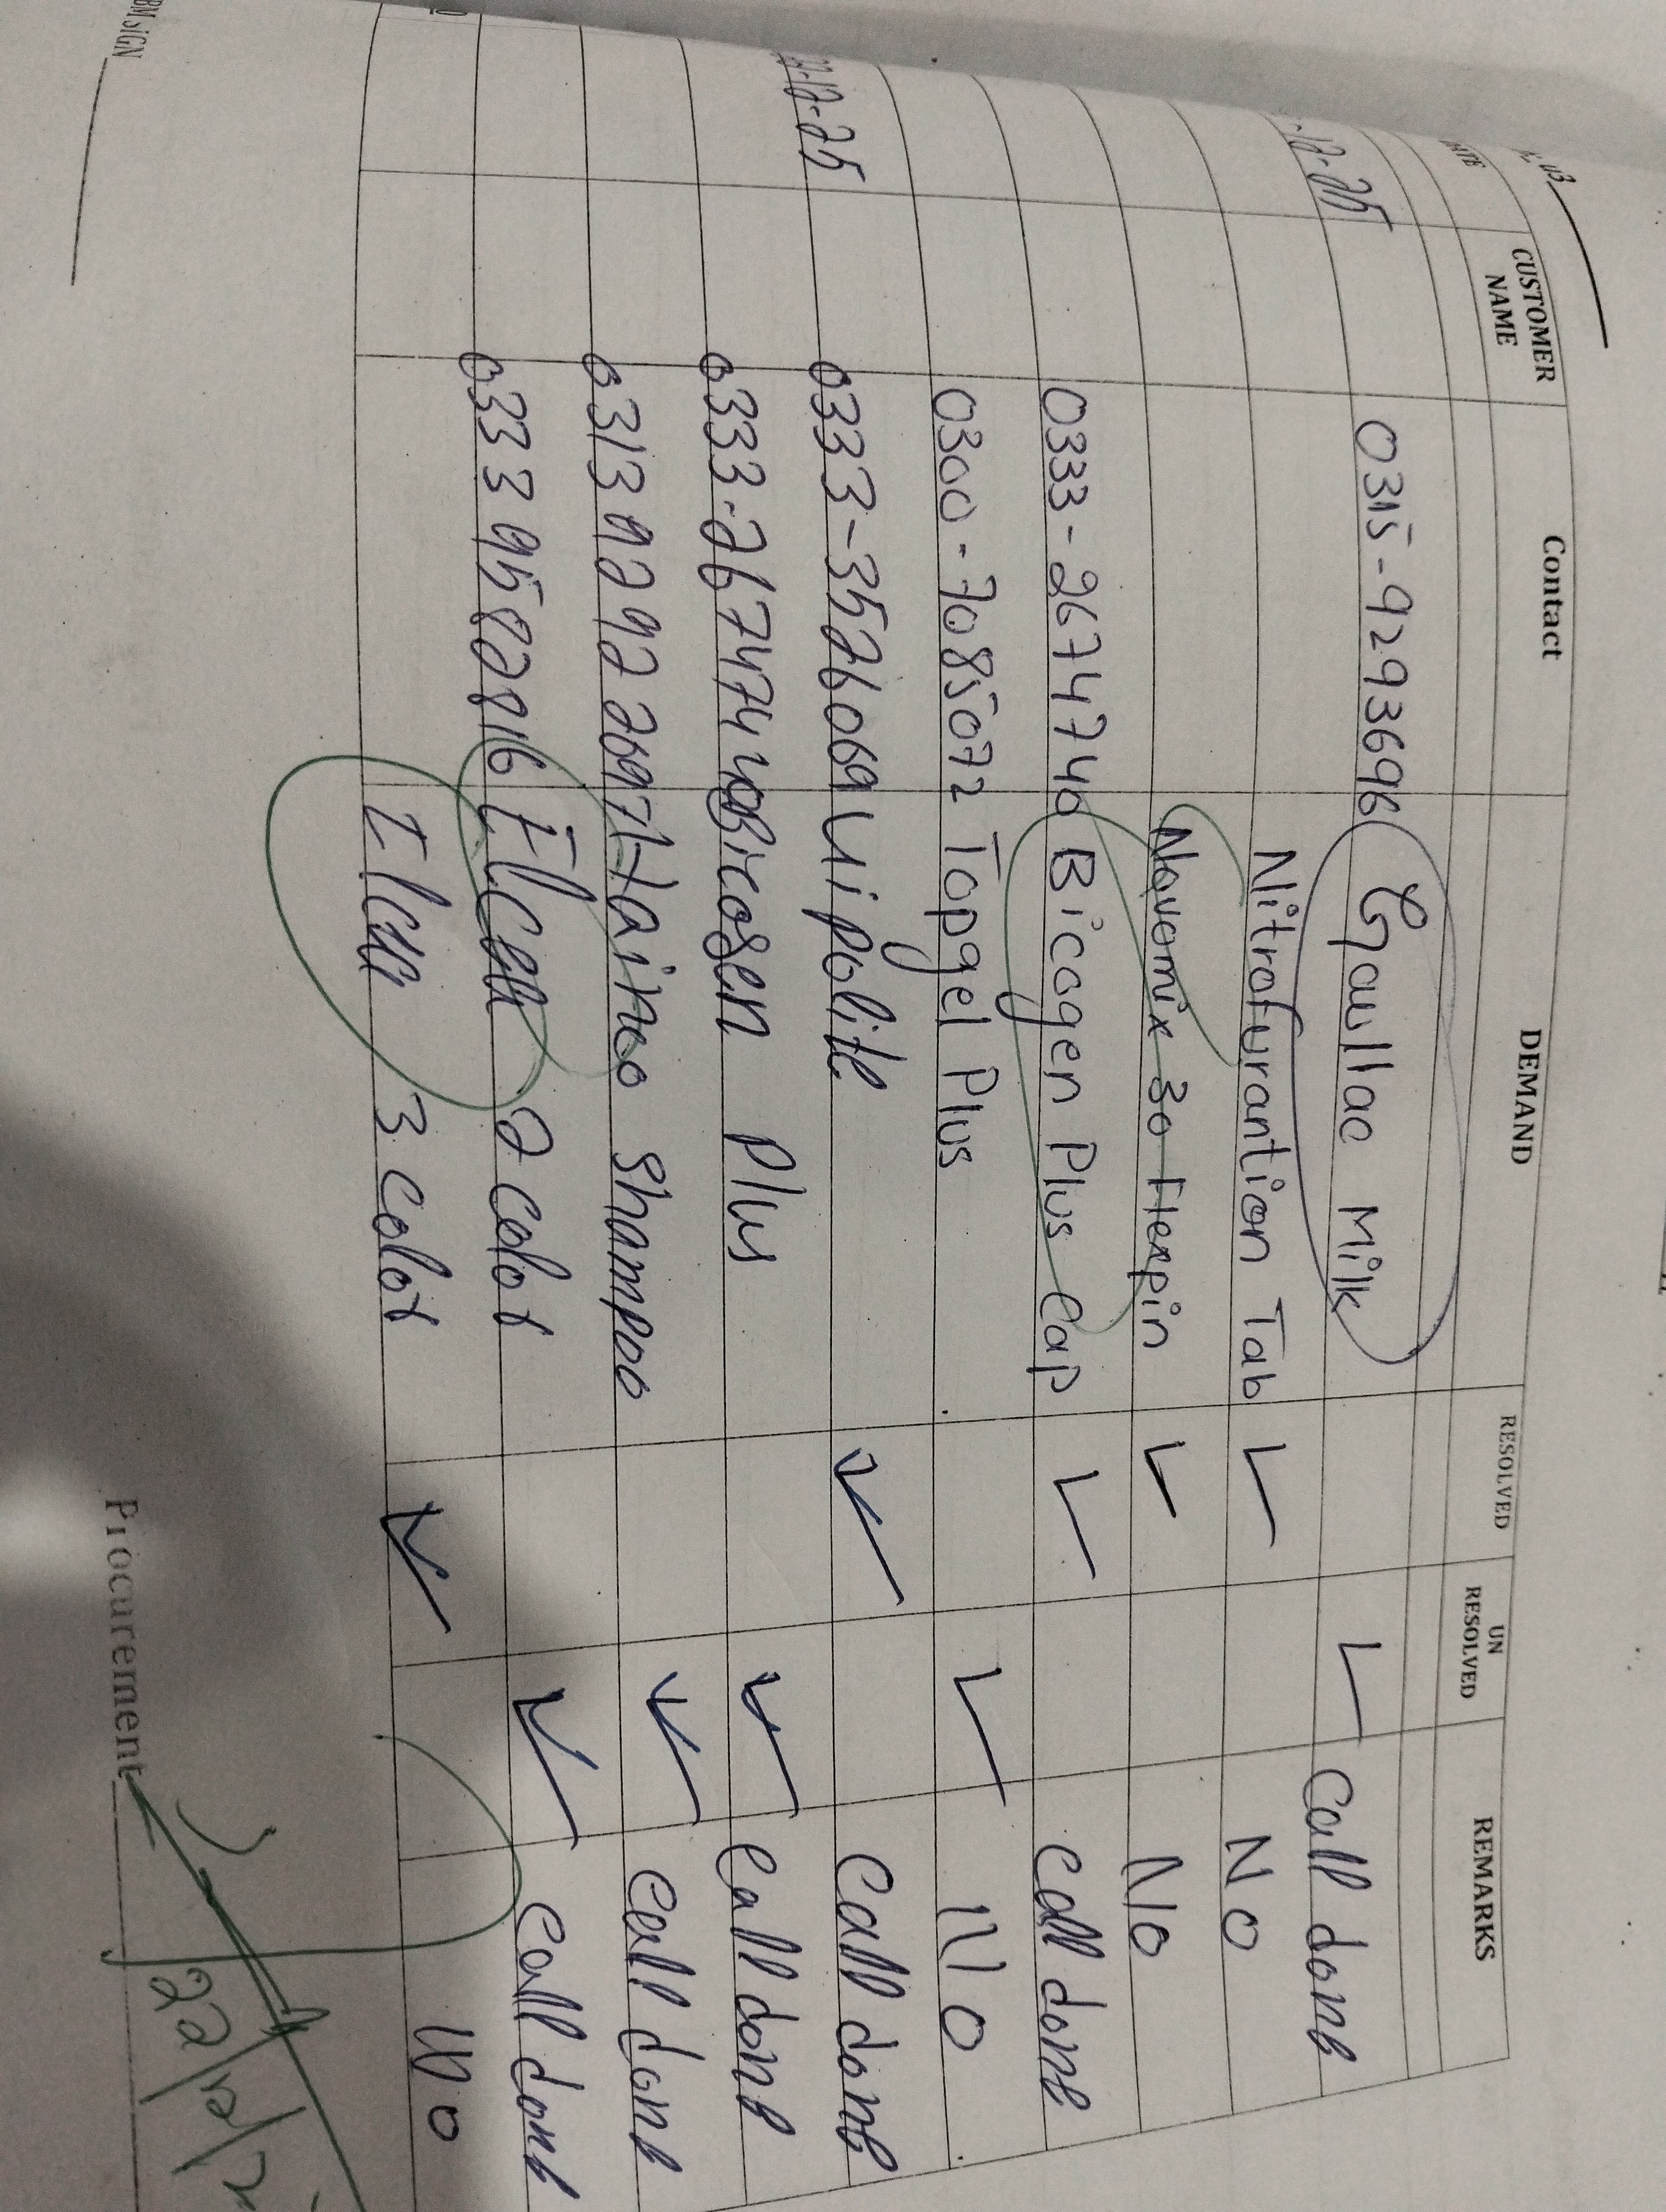 DATE CUSTOMER NAME Contact DEMAND RESOLVED UN RESOLVED REMARKS
-12-25 0315-9293696 Gaullac Milk Call done
Nitrofurantion Tab No
Novomix 30 Flexpin No
0333-2674740 Bicogen Plus Cap Call done
0300-7085072 Topgel Plus No
-12-25 0333-3526069 Uipolite Call done
0333-2674740 Bicogen Plus Call done
Hairco Shampoo Call done
0333 9582816 2 colot Call done
3 colot No
BM SIGN Procurement
22/12/